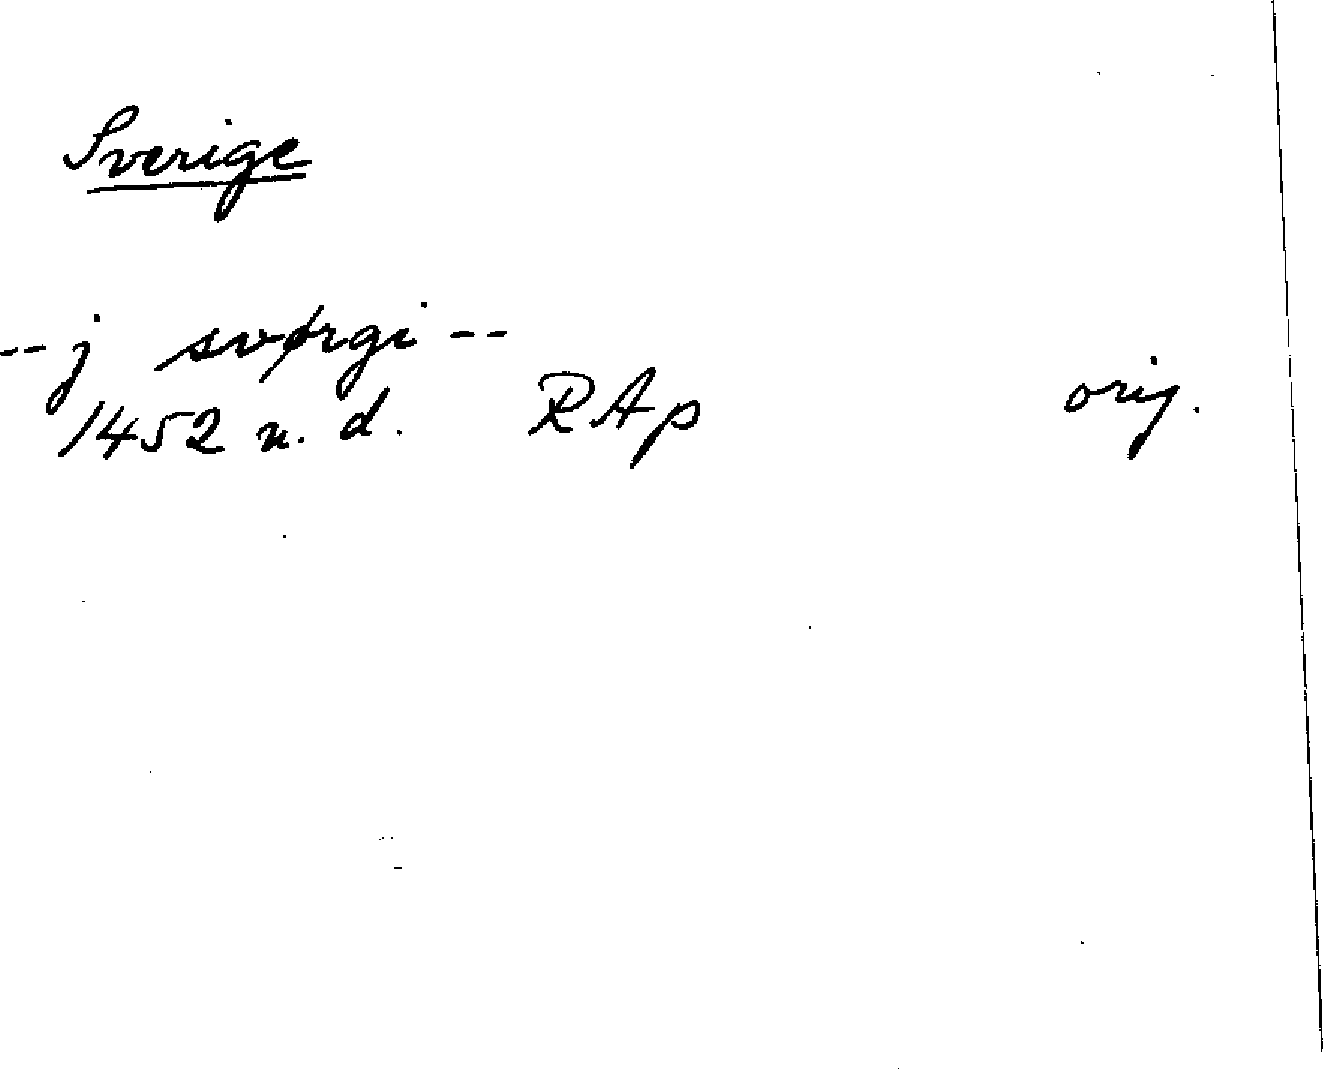 Sverige
-- j svørgi --
1452 u. d. RAp orig.